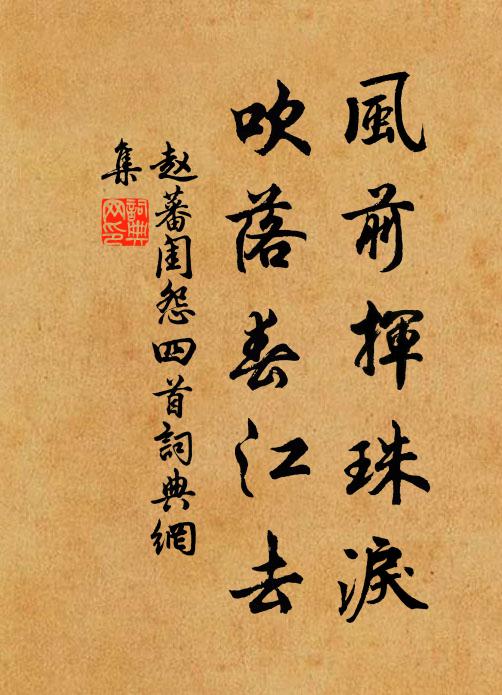 風前揮珠淚
吹落春江去
赵蕃閨怨四首詞典網
集
詞典网印